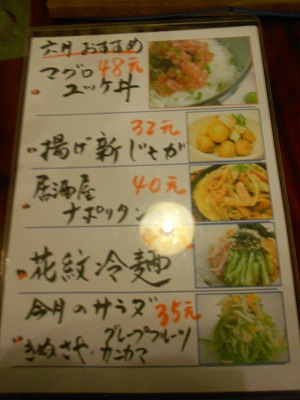 六月 おすすめ
マグロ 48元
ユッケ丼
32元
揚げ新じゃが
居酒屋 40元
ナポリタン
花紋冷麺
今月のサラダ 35元
きぬさや・グレープフルーツ
カニカマ